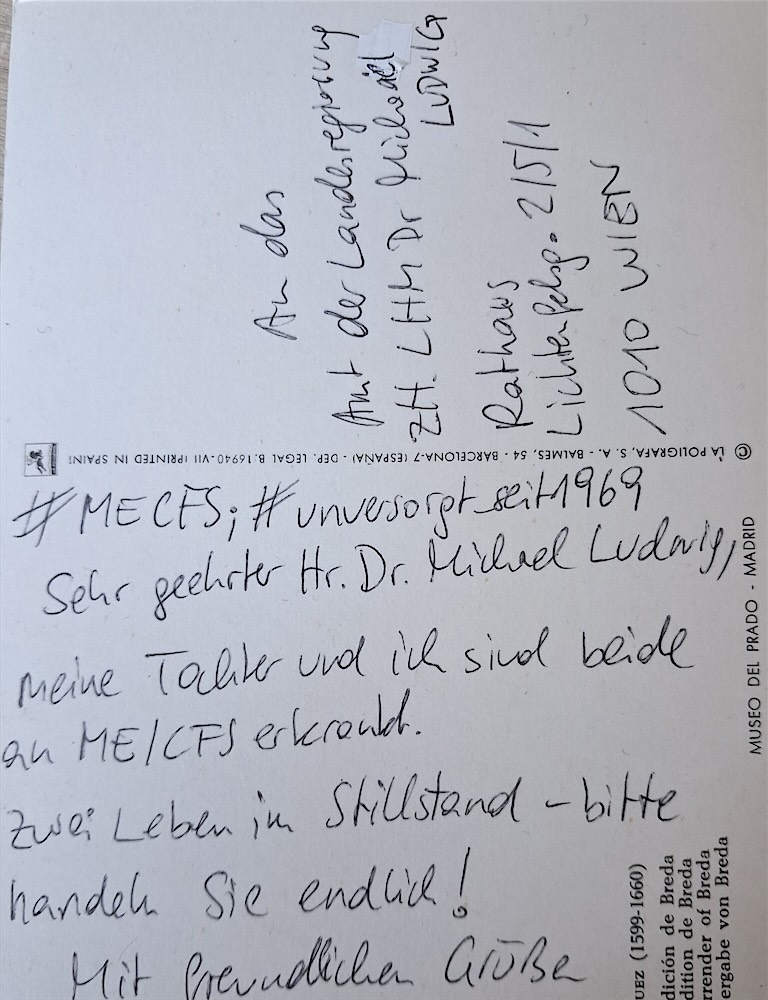 An das
Amt der Landesregierung
ZH. LHM Dr Michael
LUDWIG
Rathaus
Lichtenfelsg. 2/5/1
1010 WIEN
© LA POLIGRAFA, S. A. - BALMES, 54 - BARCELONA-7 (ESPAÑA) - DEP. LEGAL B. 16940-VII (PRINTED IN SPAIN)
#MECFS; #unversorgt_seit1969
Sehr geehrter Hr. Dr. Michael Ludwig,
meine Tochter und ich sind beide
an ME/CFS erkrankt.
Zwei Leben im Stillstand - bitte
handeln Sie endlich!
Mit freundlichen Grüßen
MUSEO DEL PRADO - MADRID
UEZ (1599-1660)
dición de Breda
dition de Breda
rrender of Breda
ergabe von Breda